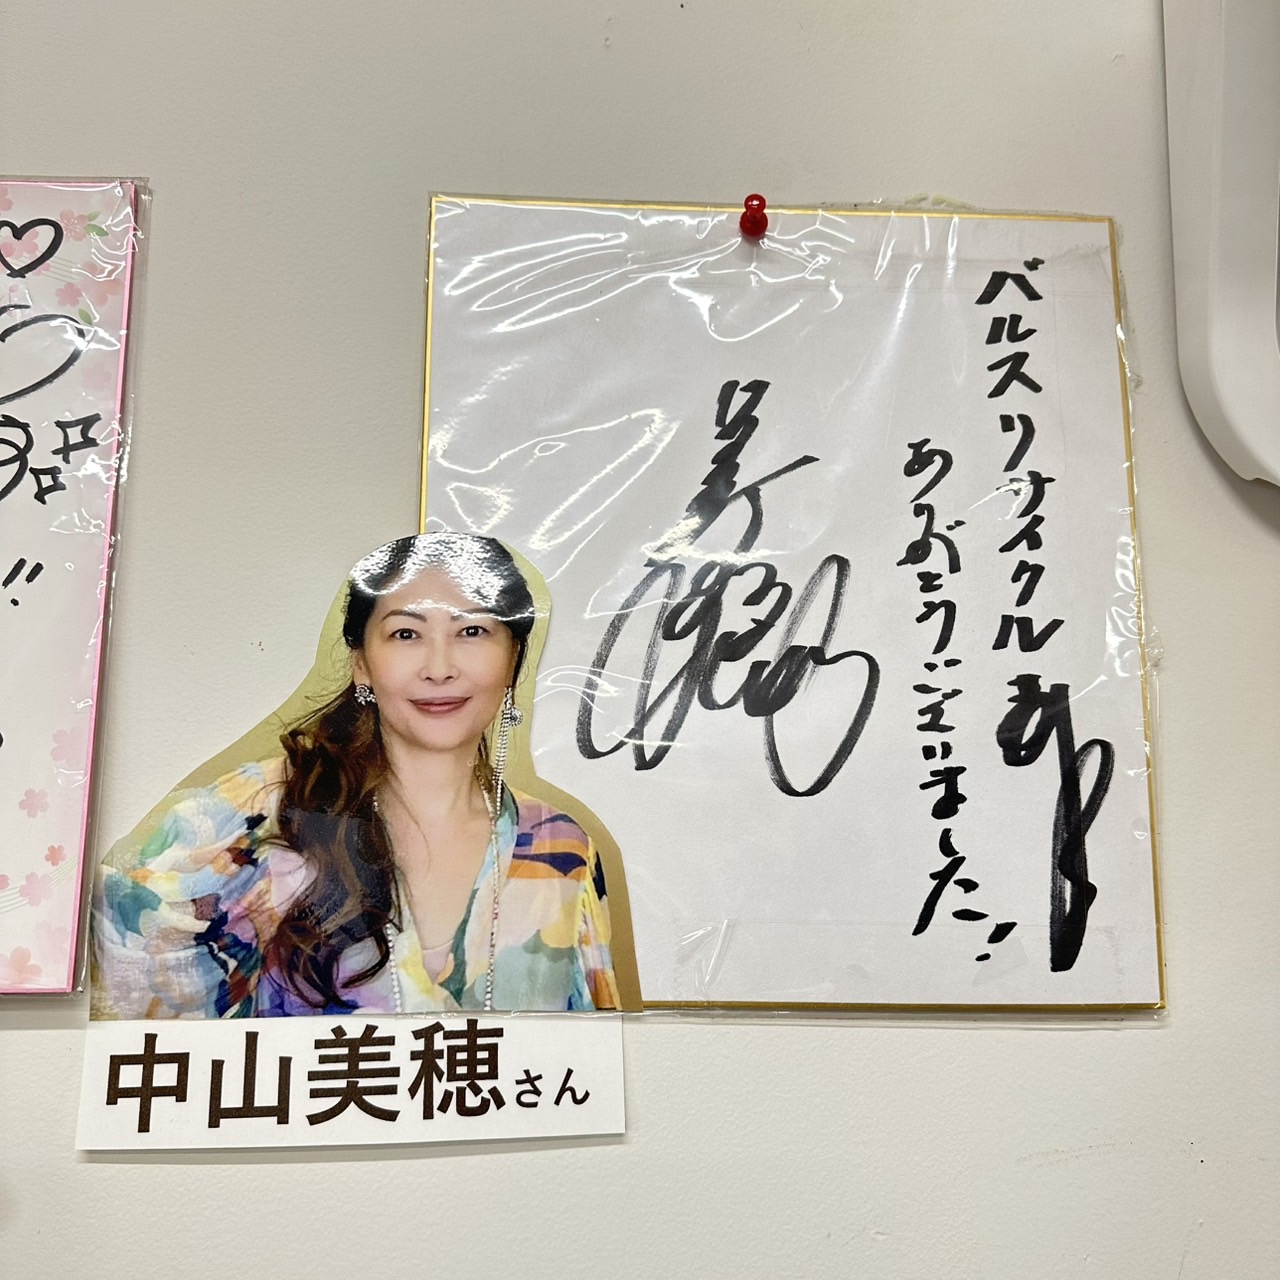 ベルスリサイクルさん
ありがとうございました!
美穂
中山美穂さん